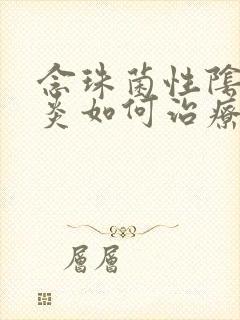 念珠菌性陰
炎如何治療
層層